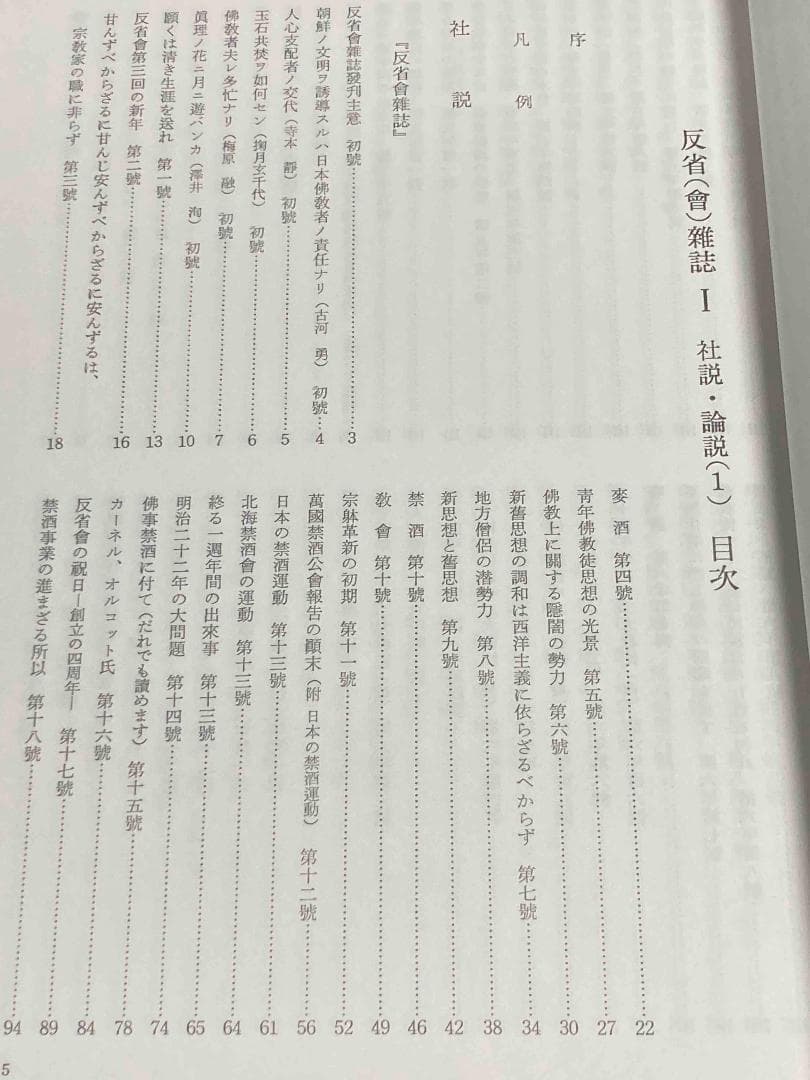 反省(會)雜誌 Ⅰ 社説・論説(1) 目次
序
凡例
社説
『反省會雜誌』
反省會雜誌發刊主意 初號……3
朝鮮ノ文明ヲ誘導スルハ日本佛敎者ノ責任ナリ(古河 勇) 初號…4
人心支配者ノ交代(寺本 靜) 初號……5
玉石共焚ヲ如何セン(掬月玄千代) 初號……6
佛敎者夫レ多忙ナリ(梅原 融) 初號……7
眞理ノ花ニ月ニ遊バンカ(澤井 洵) 初號……10
願くは清き生涯を送れ 第一號……13
反省會第三回の新年 第二號……16
甘んずべからざるに甘んじ安んずべからざるに安んずるは、
宗敎家の職に非らず 第三號……18
麥酒 第四號……22
靑年佛敎徒思想の光景 第五號……27
佛敎上に關する隱闇の勢力 第六號……30
新舊思想の調和は西洋主義に依らざるべからず 第七號……34
地方僧侶の潜勢力 第八號……38
新思想と舊思想 第九號……42
禁酒 第十號……46
敎會 第十號……49
宗躰革新の初期 第十一號……52
萬國禁酒公會報告の顚末(附 日本の禁酒運動) 第十二號……56
日本の禁酒運動 第十三號……61
北海禁酒會の運動 第十三號……64
終る一週年間の出來事 第十三號……65
明治二十二年の大問題 第十四號……74
佛事禁酒に付て(だれでも讀めます) 第十五號……78
カーネル、オルコット氏 第十六號……84
反省會の祝日―創立の四周年― 第十七號……89
禁酒事業の進まざる所以 第十八號……94
5